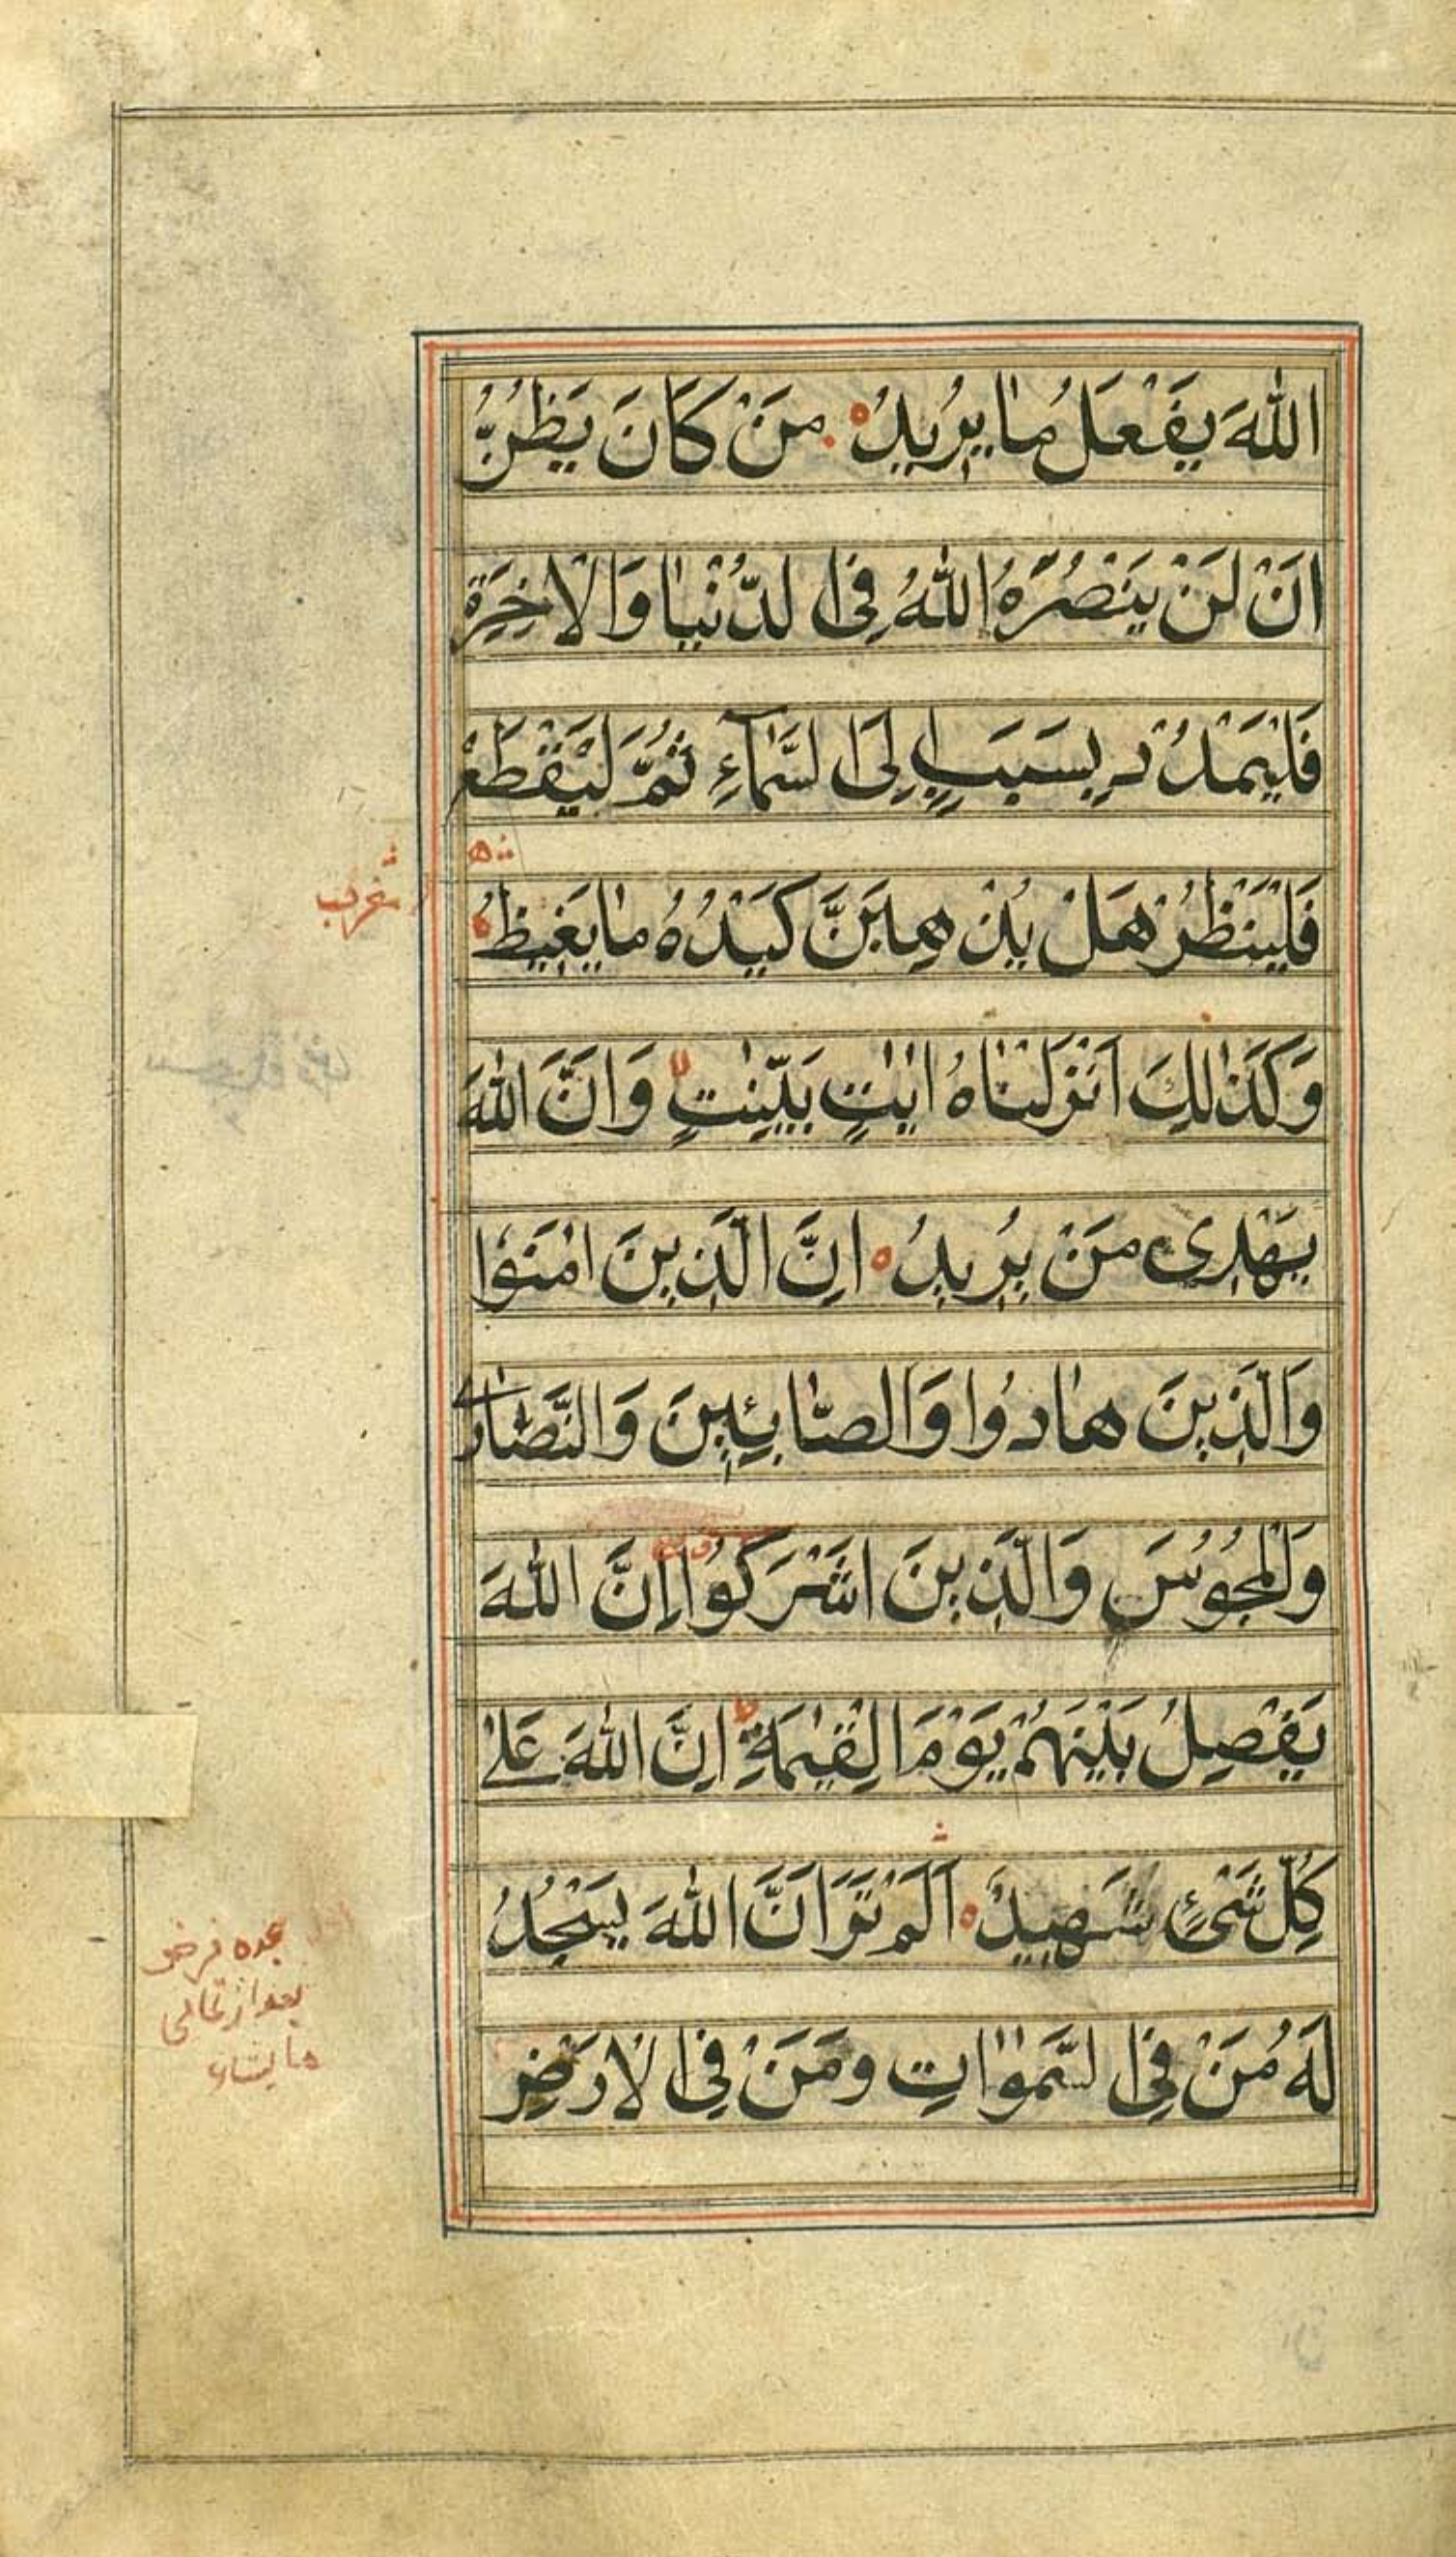 اللّٰهَ يَفْعَلُ مٰا يُرِيدُ مَنْ كَانَ يَظُنُّ
اَنْ لَنْ يَنْصُرَهُ اللّٰهُ فِى الدُّنْيٰا وَالْاٰخِرَةِ
فَلْيَمْدُدْ بِسَبَبٍ اِلَى السَّمٰآءِ ثُمَّ لْيَقْطَعْ
فَلْيَنْظُرْ هَلْ يُذْهِبَنَّ كَيْدُهُ مٰا يَغِيظُ
وَكَذٰلِكَ اَنْزَلْنٰاهُ اٰيٰتٍ بَيِّنٰتٍ وَاَنَّ اللّٰهَ
يَهْدِى مَنْ يُرِيدُ اِنَّ الَّذِينَ اٰمَنُوا
وَالَّذِينَ هٰادُوا وَالصّٰابِئِينَ وَالنَّصٰارٰى
وَالْمَجُوسَ وَالَّذِينَ اَشْرَكُوا اِنَّ اللّٰهَ
يَفْصِلُ بَيْنَهُمْ يَوْمَ الْقِيٰمَةِ اِنَّ اللّٰهَ عَلٰى
كُلِّ شَىْءٍ شَهِيدٌ اَلَمْ تَرَ اَنَّ اللّٰهَ يَسْجُدُ
لَهُ مَنْ فِى السَّمٰوٰاتِ وَمَنْ فِى الْاَرْضِ
مايشاء